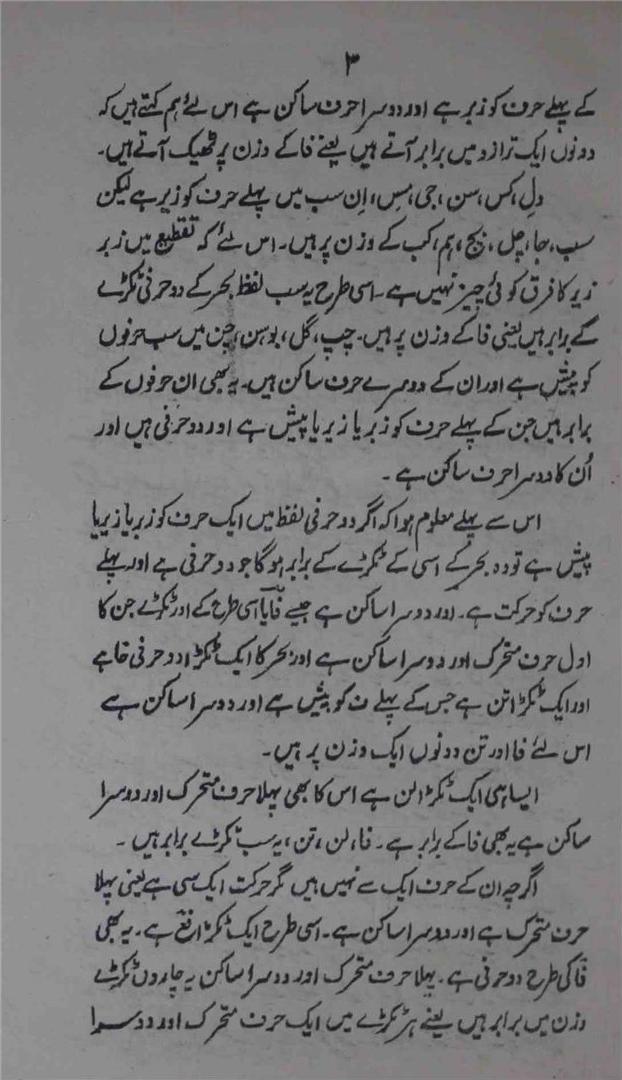 ۳
کے پہلے حرف کو زبر ہے اور دوسرا حرف ساکن ہے اس لئے ہم کہتے ہیں کہ
دونوں ایک ترازو میں برابر آتے ہیں یعنے فا کے وزن پر ٹھیک آتے ہیں۔
دِل، کس، سن، جی، مِس، اِن سب میں پہلے حرف کو زیر ہے لیکن
سب، جا، چل، بج، ہم، کب کے وزن پر ہیں۔ اس لئے کہ تقطیع میں زبر
زیر کا فرق کوئی چیز نہیں ہے۔ اسی طرح یہ سب لفظ بحر کے دو حرفی ٹکڑے
کے برابر ہیں یعنی فا کے وزن پر ہیں۔ چپ، گل، بو، سن، جن میں سب حرفوں
کو پیش ہے اور ان کے دوسرے حرف ساکن ہیں۔ یہ بھی ان حرفوں کے
برابر ہیں جن کے پہلے حرف کو زبر یا زیر یا پیش ہے اور دو حرفی ہیں اور
اُن کا دوسرا حرف ساکن ہے۔
اس سے پہلے معلوم ہوا کہ اگر دو حرفی لفظ میں ایک حرف کو زبر یا زیر یا
پیش ہے تو وہ بحر کے اسی کے ٹکڑے کے برابر ہوگا جو دو حرفی ہے اور پہلے
حرف کو حرکت ہے۔ اور دوسرا ساکن ہے جیسے فا یا اسی طرح کے اور ٹکڑے جن کا
اول حرف متحرک اور دوسرا ساکن ہے اور بحر کا ایک ٹکڑا دو حرفی فا ہے
اور ایک ٹکڑا تن ہے جس کے پہلے ت کو پیش ہے اور دوسرا ساکن ہے
اس لئے فا اور تن دونوں ایک وزن پر ہیں۔
ایسا ہی ایک ٹکڑا لن ہے اس کا بھی پہلا حرف متحرک اور دوسرا
ساکن ہے یہ بھی فا کے برابر ہے۔ فا، لن، تن، یہ سب ٹکڑے برابر ہیں۔
اگرچہ ان کے حرف ایک سے نہیں ہیں مگر حرکت ایک سی ہے یعنی پہلا
حرف متحرک ہے اور دوسرا ساکن ہے۔ اسی طرح ایک ٹکڑا ہے۔ یہ بھی
فا کی طرح دو حرفی ہے۔ پہلا حرف متحرک اور دوسرا ساکن یہ چاروں ٹکڑے
وزن میں برابر ہیں یعنے ہر ٹکڑے میں ایک حرف متحرک اور دوسرا